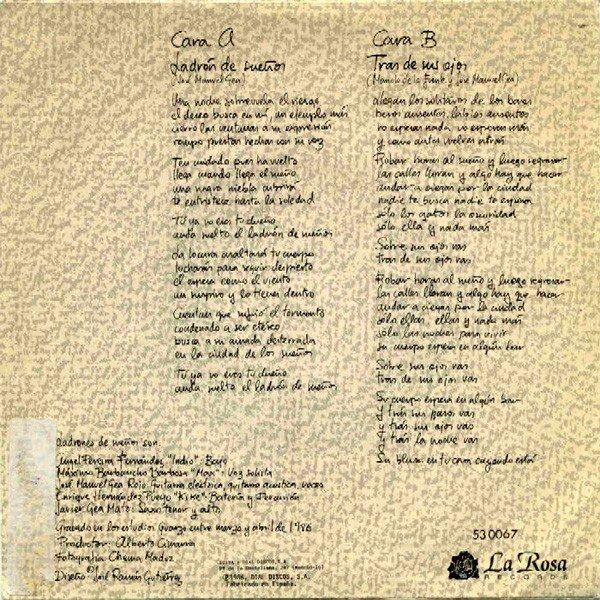 Cara A
Ladrón de sueños
(José Manuel Gea)
Una noche, sobrevuela el riesgo
el deseo busca en mí, un ejemplo más
cierro las ventanas a su expresión
rompo puertas hechas con su voz
Ten cuidado pues ha vuelto
llega cuando llega el sueño
una nueva niebla
te entristece hasta la soledad
Tú ya no eres tu dueño
anda suelto el ladrón de sueños
La locura asaltará tu cuerpo
lucharás para seguir despierto
él espera como el viento
un suspiro y lo tienes dentro
Cuentan que sufrió el tormento
condenado a ser etéreo
busca a su amada desterrada
en la ciudad de los sueños
Tú ya no eres tu dueño
anda suelto el ladrón de sueños
Cara B
Tras de sus ojos
(Manolo de la Fuente y José Manuel Gea)
Llegan los solitarios de los bares
besos ausentes, labios ausentes
no esperan nada, no esperan más
y como antes vuelven atrás
Robar horas al sueño y luego regresar
las calles lloran y algo hay que hacer
andar a ciegas por la ciudad
nadie te busca nadie te espera
sólo los gatos la oscuridad
sólo ella y nada más
Sobre sus ojos vas
tras de sus ojos vas
Robar horas al sueño y luego regresar
las calles lloran y algo hay que hacer
andar a ciegas por la ciudad
sólo ellas, ellas y nada más
sólo las noches para vivir
su cuerpo espera en algún bar
Sobre sus ojos vas
tras de sus ojos vas
Su cuerpo espera en algún bar
y tras sus pasos vas
y tras sus ojos vas
y tras la noche vas
Su blusa en tu cama cayendo está
Ladrones de sueños son:
Angel Pereira Fernández "Indio": Bajo
Máximo Barbancho Barbosa "Max": Voz solista
José Manuel Gea Rojo: Guitarra eléctrica, guitarra acústica, voces
Enrique Hernández Pueyo "Kike": Batería y Percusión
Javier Gea Mato: Saxo tenor y alto.
Grabado en los estudios entre marzo y abril de 1986
Productor: Alberto
Fotografía Chema Madoz
Diseño: José Ramón Gutiérrez
DIAL DISCOS, S.A.
℗1986, DIAL DISCOS, S.A.
Fabricado en España.
530067
La Rosa
RECORDS